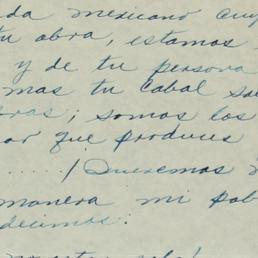 da mexicano
tu obra, estamos
y de tu persona
mas tu cabal
ras; somos los
or que produces
...... / Queremos
manera mi pob
decimos: